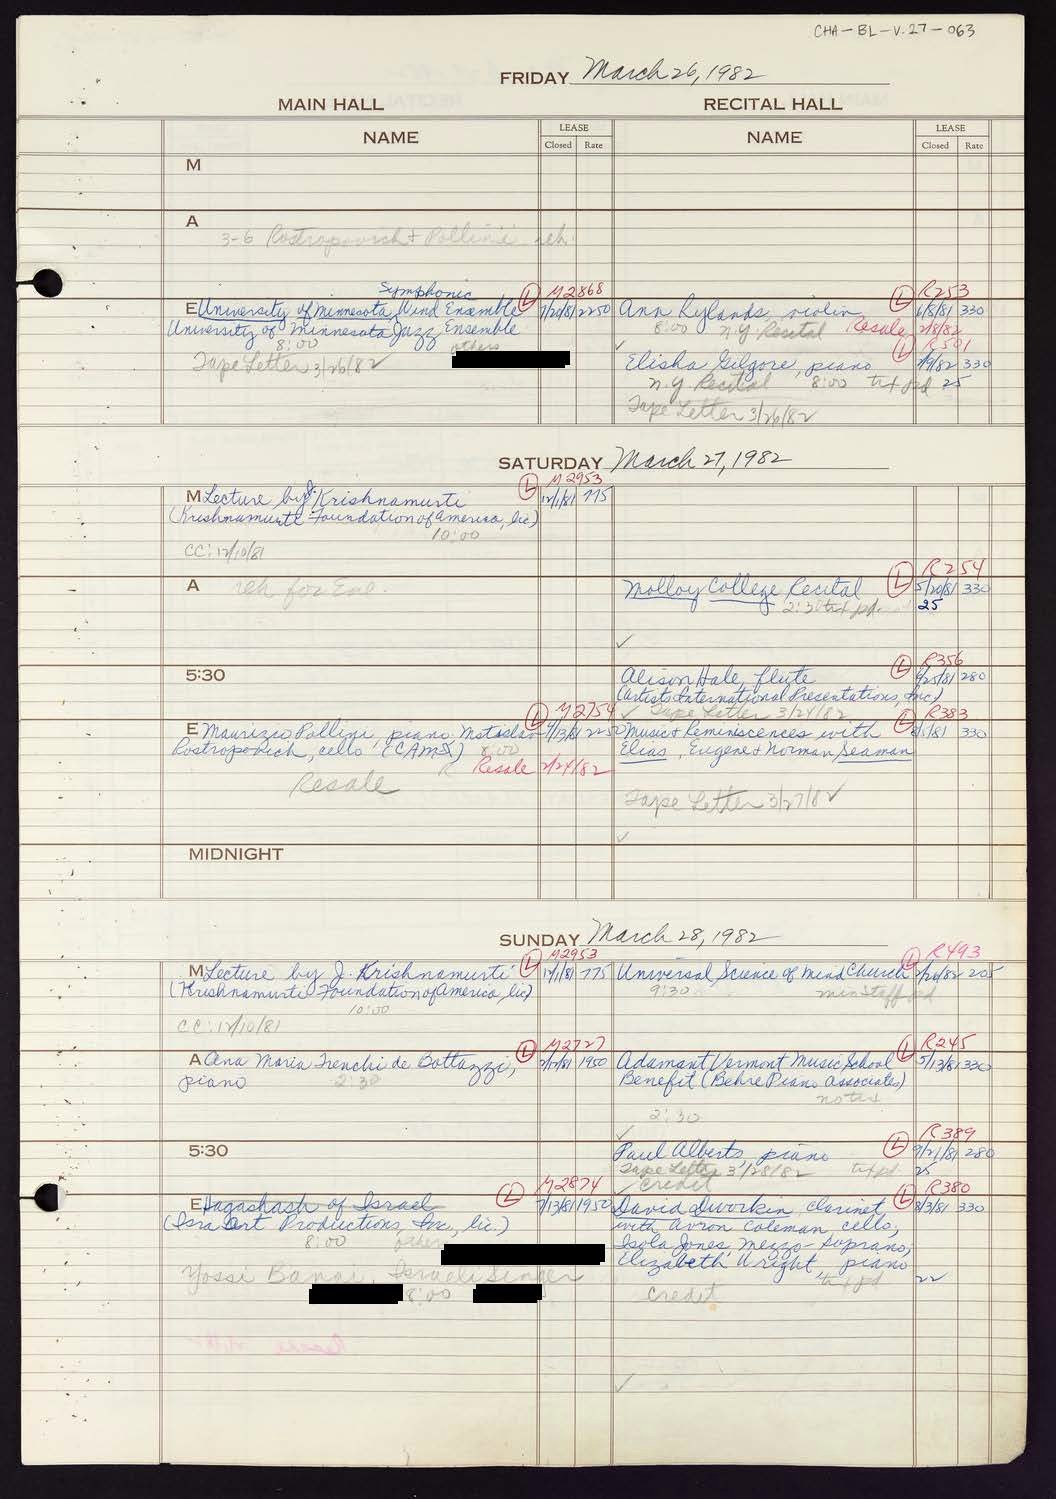 CHA-BL-V.27-063
FRIDAY March 26, 1982
MAIN HALL RECITAL HALL
NAME LEASE Closed Rate NAME LEASE Closed Rate
M
A
3-6 Rostropovich + Pollini reh.
Symphonic L M2868
E University of Minnesota Wind Ensemble 7/20/81 2250
University of Minnesota Jazz Ensemble
8:00 others
Tape Letter 3/26/82
L R253
Ann Rylands, violin 6/8/81 330
8:00 N.Y. Recital Resale 2/8/82
L R501
Elisha Gilgore, piano 2/9/82 330
N.Y. Recital 8:00 txt pd 25
Tape Letter 3/26/82
SATURDAY March 27, 1982
L M2953
M Lecture by J. Krishnamurti 12/1/81 775
(Krishnamurti Foundation of America, lic)
10:00
CC: 12/10/81
A reh for Eve.
L R254
Molloy College Recital 5/20/81 330
2:30 txt pd. 25
5:30
L R356
Alison Hale, flute 8/25/81 280
(Artists International Presentations, Inc)
Tape Letter 3/24/82
L M2754
E Maurizio Pollini, piano Mstislav 4/13/81 2250
Rostropovich, cello (CAMI) 8:00
R Resale 2/24/82
Resale
L R383
Music & Reminiscences with 8/5/81 330
Elias, Eugene & Norman Seaman
Tape Letter 3/27/82
MIDNIGHT
SUNDAY March 28, 1982
L M2953
M Lecture by J. Krishnamurti 12/1/81 775
(Krishnamurti Foundation of America, lic)
10:00
CC: 12/10/81
L R493
Universal Science of Mind Church 2/26/82 205
9:30 min staff pd
L M2727
A Ana Maria Trenchi de Bottazzi, 2/12/81 1950
piano 2:30
L R245
Adamant Vermont Music School 5/13/81 330
Benefit (Behre Piano Associates)
notes
2:30
5:30
L R389
Paul Alberts, piano 9/21/81 280
Tape Letter 3/28/82 txt pd. 25
credit
L M2874
E Hagashash of Israel 7/13/81 1950
(Isra Art Productions, Inc., lic.)
8:00 others
Yossi Banai, Israeli Singer
8:00
L R380
David Dworkin, clarinet 8/3/81 330
with Avron Coleman, cello,
Isola Jones, Mezzo-Soprano,
Elizabeth Wright, piano
txt pd 22
credit